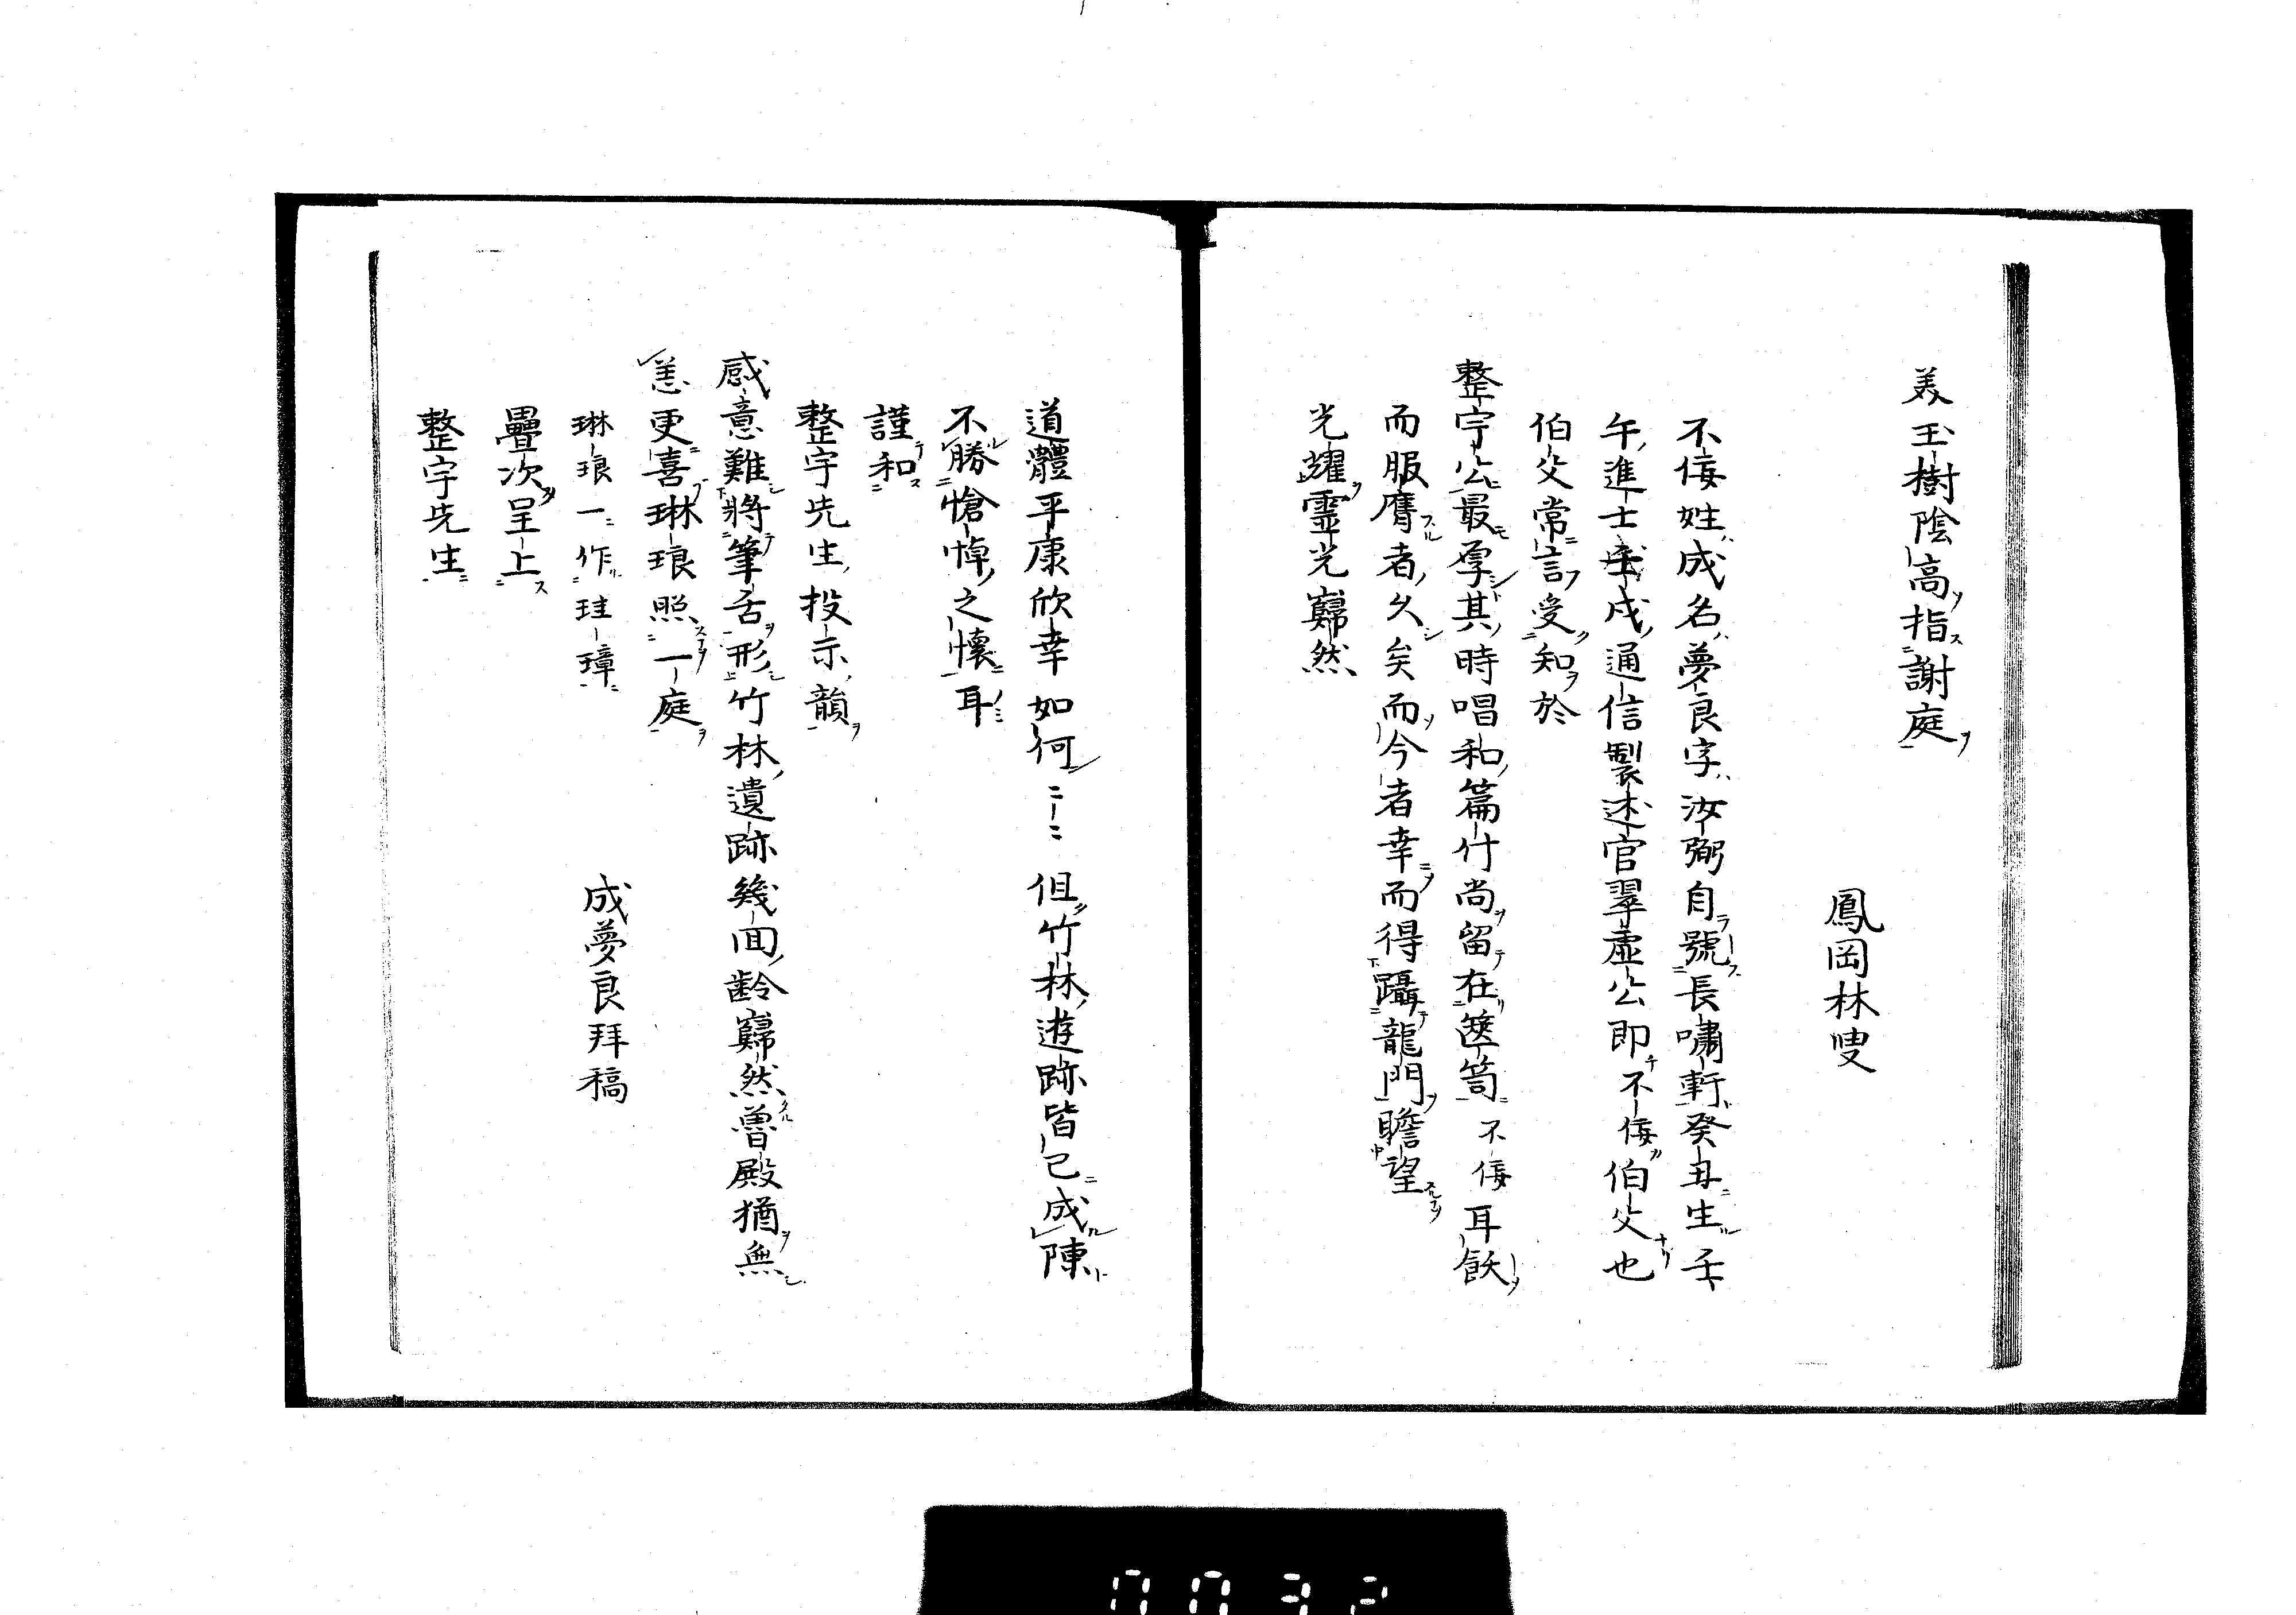 美玉樹陰高指謝庭
鳳岡林叟
不佞姓成名夢良字汝弼自號長嘯軒癸丑生壬
午進士壬戌通信製述官翠虛公即不佞伯父也
伯父常言受知於
整宇公最厚其時唱和篇什尚留在篋笥不佞耳飫
而服膺者久矣而今者幸而得躡龍門瞻望
光耀霊光巋然
道體平康欣幸如何〻〻但竹林遊跡皆已成陳
不勝愴悼之懷耳
謹和
整宇先生投示韻
感意難將筆舌形竹林遺跡幾回齡巋然魯殿猶無
恙更喜琳琅照一庭
琳琅一作珪璋
成夢良拜稿
疊次呈上
整宇先生
0032